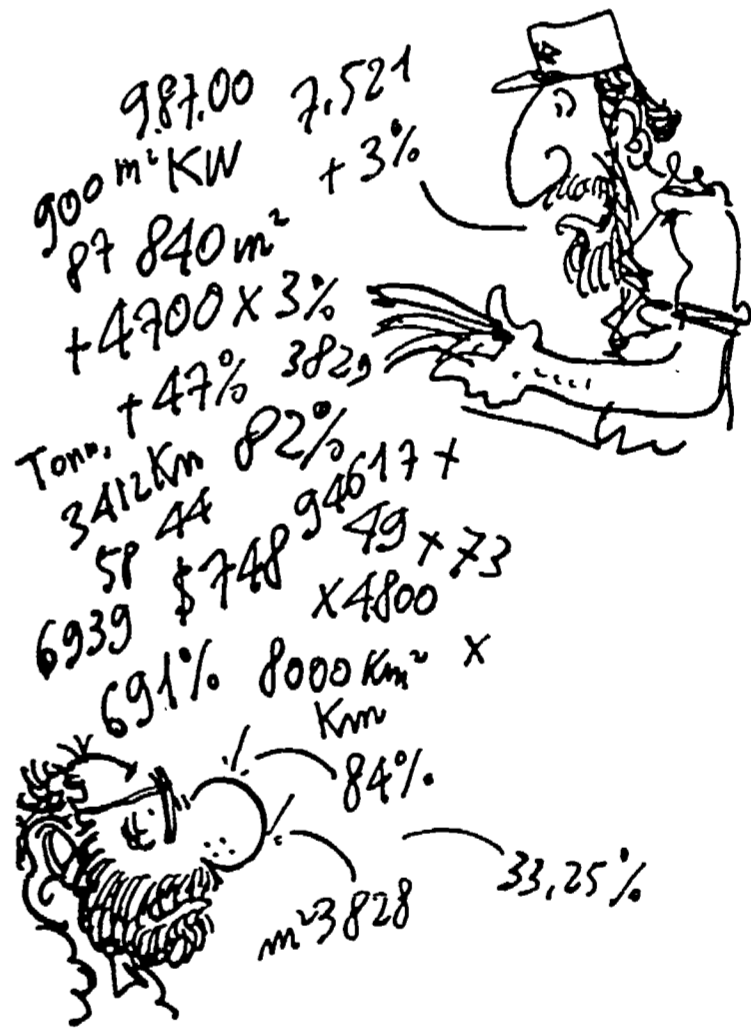 987.00 7.521
900 m² KW + 3%
87 840 m²
+ 4700 x 3%
+ 47% 3829
Tonn. 3412 Km 82%
58 44 94617 +
6939 $748 49 + 73
x 4800
691% 8000 Km² x
Km
84%
33,25%
m² 3828